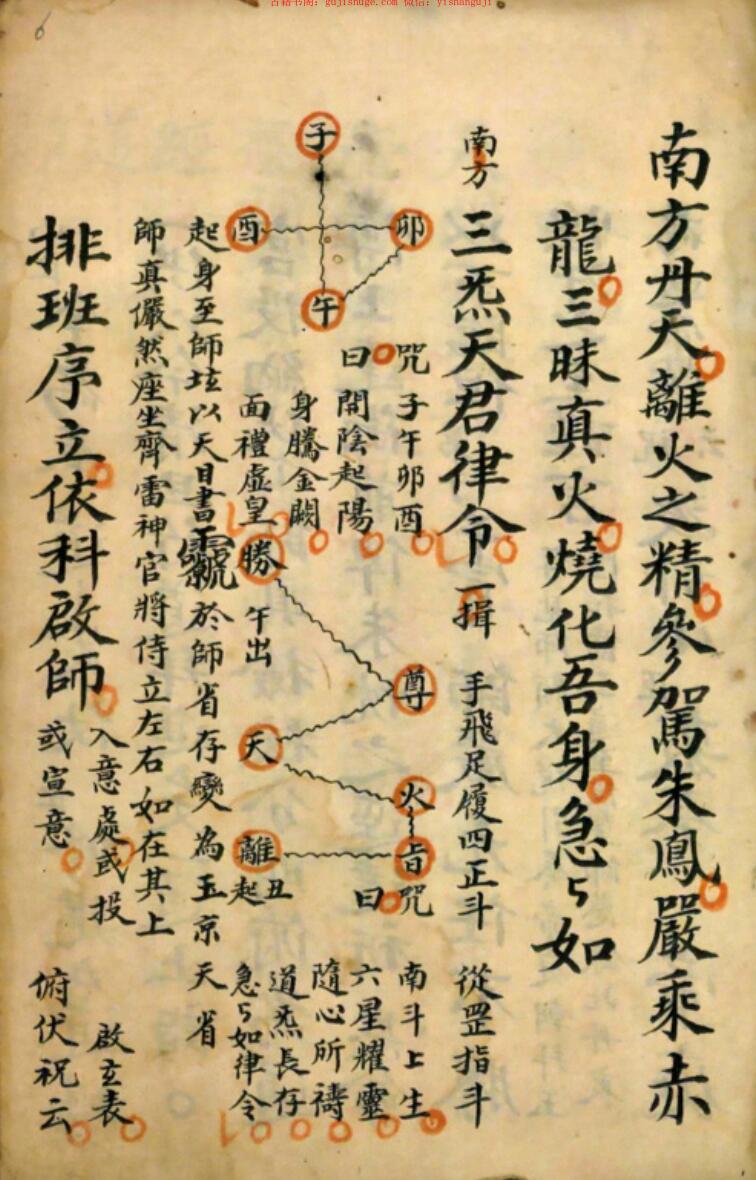 古籍书阁:gujishuge.com 微信:yishanguji
6
南方丹天離火之精參駕朱鳳嚴乘赤
龍三昧真火燒化吾身急〻如
南方三炁天君律令一揖 手飛足履四正斗 從罡指斗
子
酉
卯
午
咒曰
子午卯酉
開陰起陽
身騰金闕
面禮虛皇
勝
午出
尊
天
火
離
丑起
咒曰
南斗上生
六星耀靈
隨心所禱
道炁長存
急〻如律令
起身至師坛以天目書 於師省存變為玉京天省
師真儼然座坐齊雷神官將侍立左右如在其上
排班序立依科啟師 入意處或投 或宣意 啟玄表 俯伏祝云